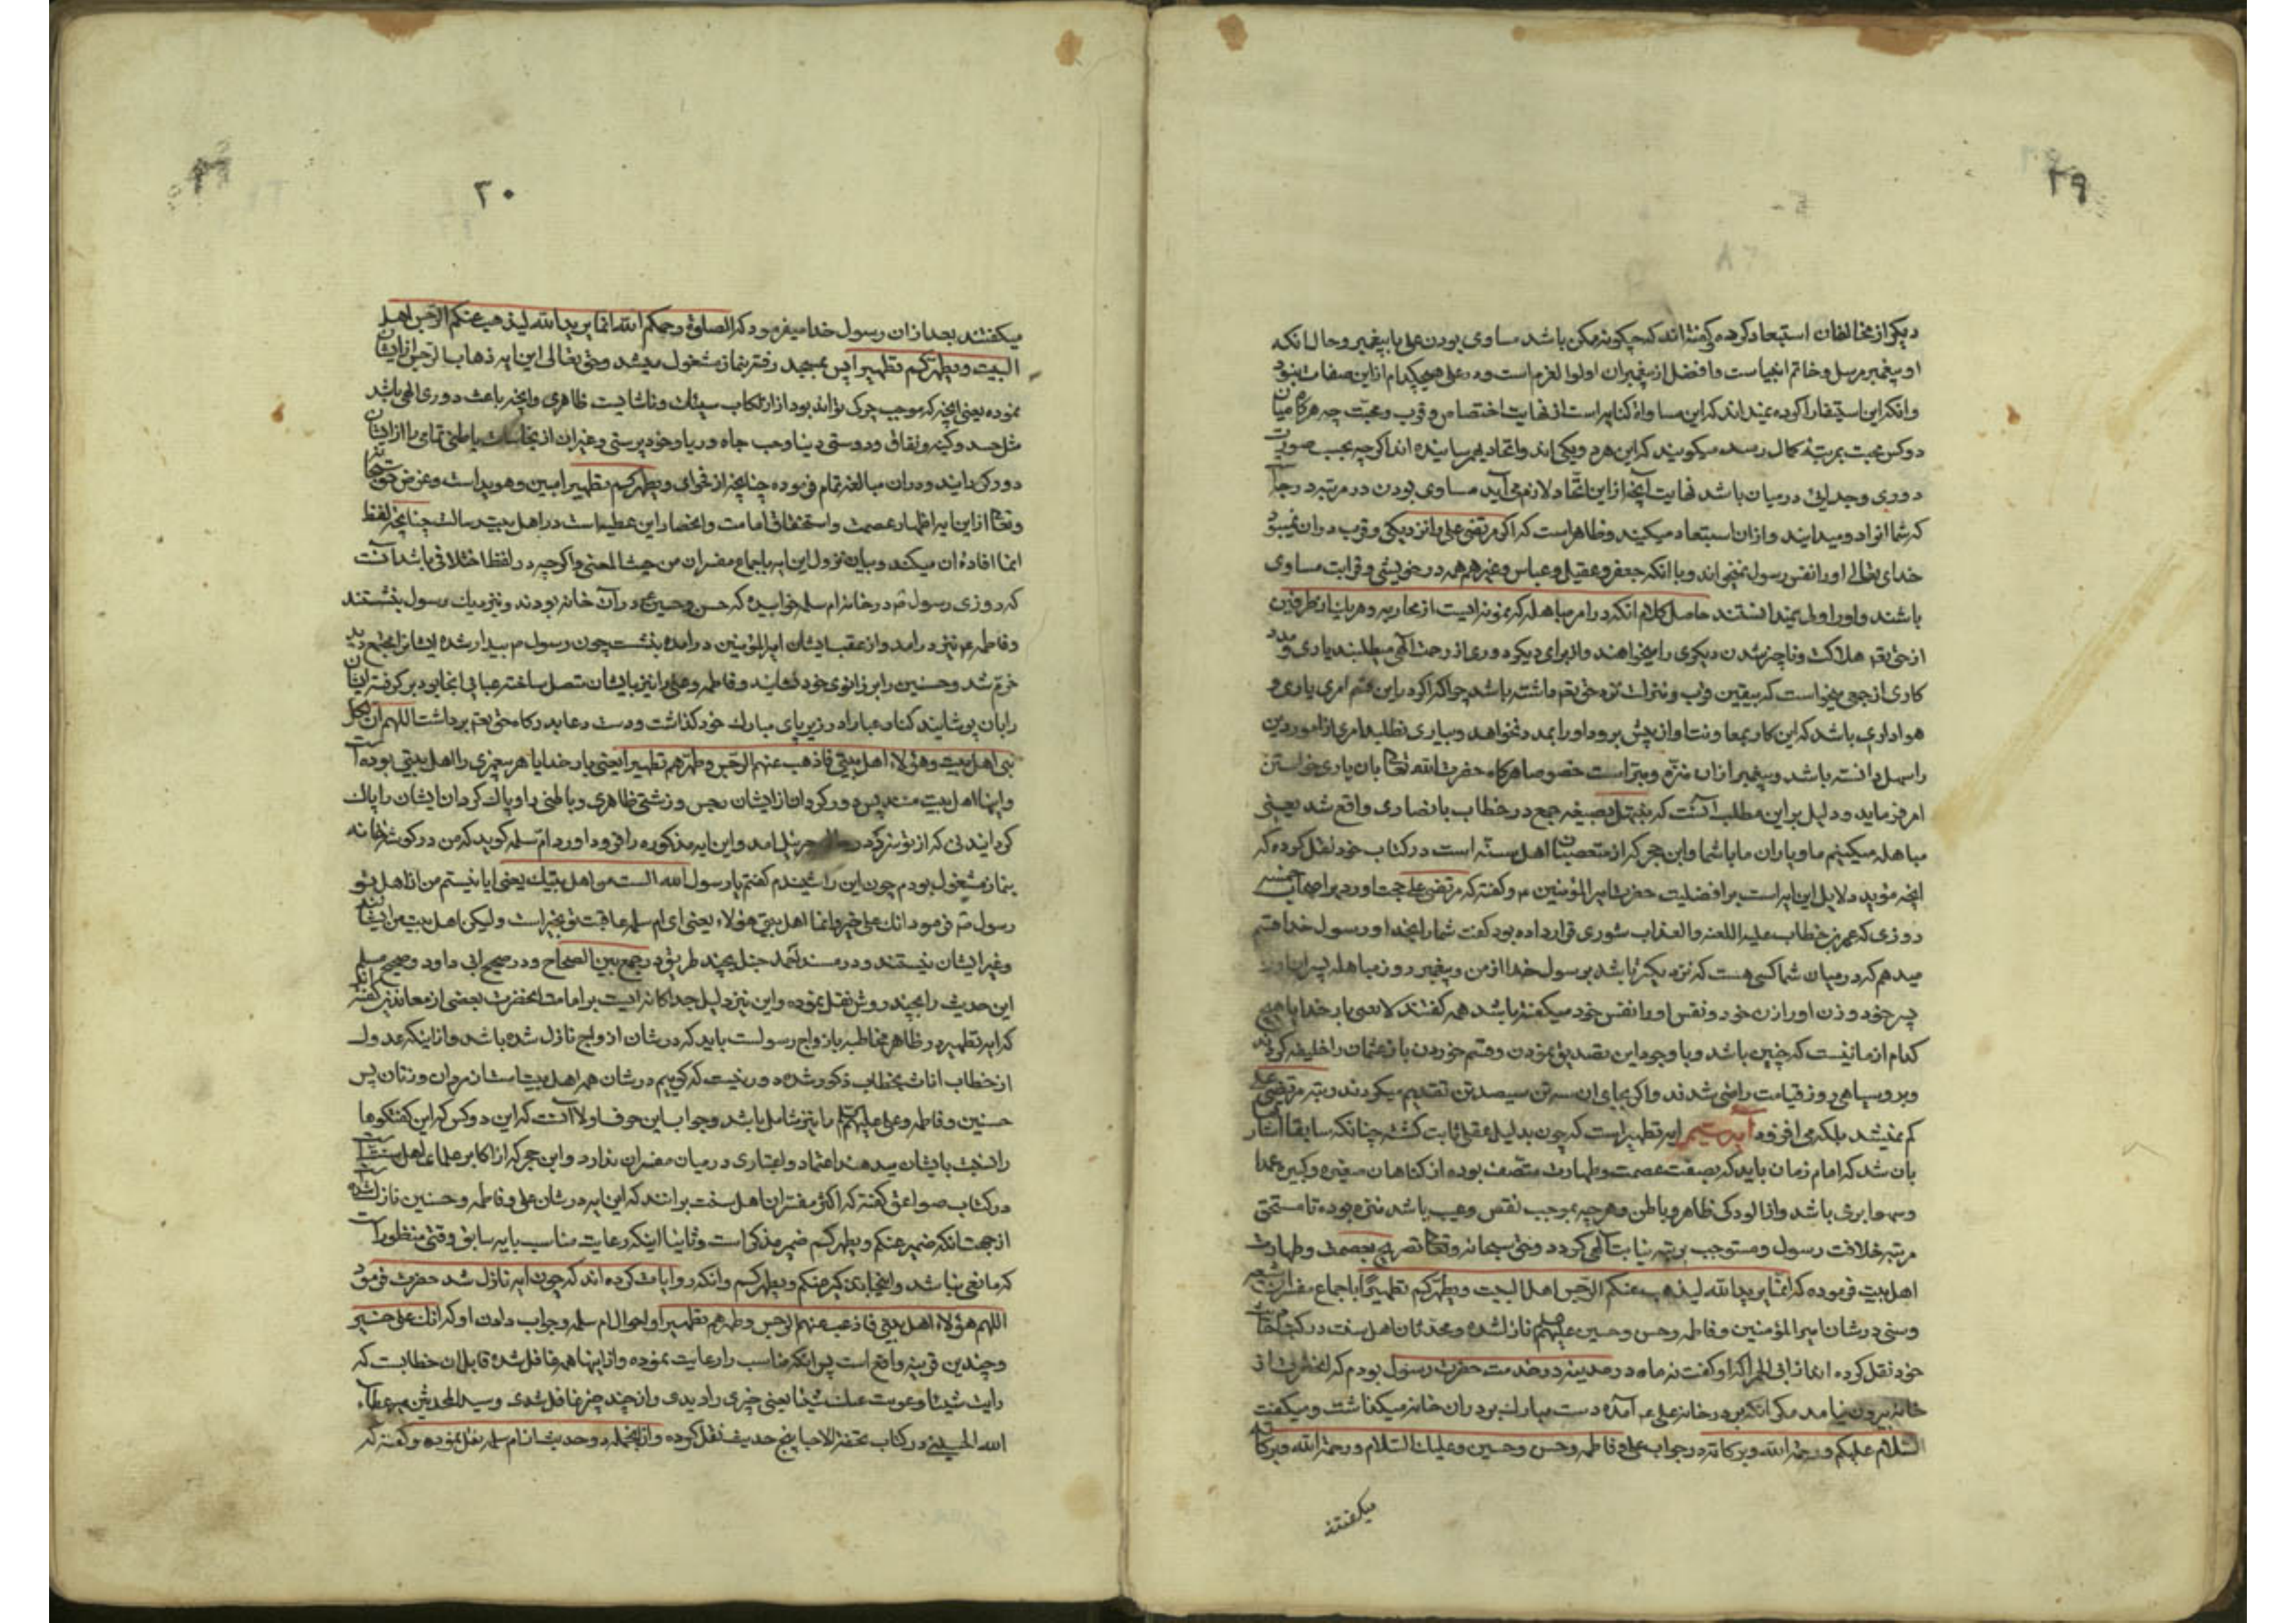 ۲۹
دیکر از مخالفان استبعاد کرده و کفته‌اند که چکونه ممکن باشد مساوی بودن علی با پیغمبر و حال آنکه
او پیغمبر مرسل و خاتم انبیاست و افضل از پیغمبران اولوا العزم است و در علی هیچکدام از این صفات نبود
و آنکه این استبعاد کرده نمیداند که این مساواة کنایه است از نهایت اختصاص و قرب و محبت چه هرکاه میان
دو کس محبت بمرتبه کمال رسد میکویند که این هر دو یکی‌اند و اتحاد بهم رسانیده‌اند اکرچه بحسب صورت
دوری و جدائی در میان باشد نهایت آنچه از این اتحاد لازم می‌آید مساوی بودن در مرتبه و درجه است
که شما انرا دور میدانید و از ان استبعاد میکنید و ظاهر است که اکر مرتضی علی را نزدیکی و قرب دران نمیبود
خدای تعالی او را نفس رسول نمیخواند و با آنکه جعفر و عقیل و عباس و غیرهم همه در خویشی و قرابت مساوی
باشند و او را اولی نمیدانستند حاصل کلام آنکه در امر مباهله که نمونه ایست از محاربه و هر یک از طرفین
از حق تعم هلاکت و ناچیز شدن دیکری را میخواهند و از برای دیکر دوری از رحمت الهی میطلبند یاری و مدد
کاری از جمعی میخواست که بیقین قرب و منزلت نزد حق تعم داشته باشد چرا که اکر در این قسم امری یاری و
هواداری باشد که این کار بمعاونت او از پیش برود او را بمدد نخواهد و بیاری نطلبد امری از امور دین
را سهل دانسته باشد و پیغمبر ازان منزه و مبراست خصوصا هرکاه حضرت الله تعالی بان یاری خواستن
امر فرماید و دلیل بر این مطلب آنست که نبتهل بصیغه جمع در خطاب با نصاری واقع شد یعنی
مباهله میکنیم ما و یاران ما با شما و ابن حجر که از متعصبان اهل سنه است در کتاب خود نقل کرده که
آنچه مؤید دلایل این ایه است بر افضلیت حضرت امیر المؤمنین ع و کفته که مرتضی علی حجت اورد بر اصحاب خمسه
روزی که عمر بن خطاب علیه اللعنه والعذاب شوری قرار داده بود کفت شما را بخدا و رسول خدا قسم
میدهم که در میان شما کسی هست که نزدیکتر باشد برسول خدا از من و پیغمبر روز مباهله پسر او را
پسر خود و زن او را زن خود و نفس او را نفس خود میکفته باشد همه کفتند لا یعنی بار خدایا هیچ
کدام از ما نیست که چنین باشد و با وجود این تصدیق نمودن و قسم خوردن باز عثمان را خلیفه کردند
و بروسیاهی روز قیامت راضی شدند و اکر بجای ان سه تن سیصد تن تقدیم میکردند رتبه مرتضی علی
کم نمیشد بلکه می افزود آیه سیم ایه تطهیر است که چون بدلیل عقلی ثابت کشته چنانکه سابقا اشاره
بان شد که امام زمان باید که بصفت عصمت و طهارت متصف بوده از کناهان صغیره و کبیره عمدا
و سهوا بری باشد و از الودکی ظاهر و باطن و هرچه موجب نقص و عیب باشد منزه بوده تا مستحق
مرتبه خلافت رسول و مستوجب رتبه نیابت الهی کردد و حق سبحانه و تعالی تصریح بعصمت و طهارت
اهل بیت فرموده که انما یرید الله لیذهب عنکم الرجس اهل البیت و یطهرکم تطهیرا باجماع مفسران شیعه
و سنی در شان امیر المؤمنین و فاطمه و حسن و حسین علیهم السلام نازل شده و محدثان اهل سنت در کتابهای
خود نقل کرده‌اند از ابی الحمرا که او کفت نه ماه در مدینه در خدمت حضرت رسول بودم که انحضرت از
خانه بیرون نیامد مکر آنکه بر در خانه علی ع آمده دست مبارک بر در ان خانه میکذاشت و میکفت
السلام علیکم و رحمة الله و برکاته در جواب علی و فاطمه و حسن و حسین و علیک السلام و رحمة الله و برکاته
میکفتند
۳۰
میکفتند بعد از ان رسول خدا میفرمود که الصلوة رحمکم الله انما یرید الله لیذهب عنکم الرجس اهل
البیت و یطهرکم تطهیرا پس بمسجد رفته بنماز مشغول میشد و حق تعالی این ایه ذهاب الرجس از ایشان
نموده یعنی آنچه که موجب چرک تواند بود از ارتکاب سیئات و ناشایست ظاهری و آنچه باعث دوری الهی باشد
مثل حسد و کینه و نفاق و دوستی دنیا و حب جاه و ریا و خود پرستی و غیر ان از نجاسات باطنی تمامی را از ایشان
دور کردانید و دران مبالغه تمام فرموده چنانچه از فحوای و یطهرکم تطهیرا مبین و هویداست و غرض حق سبحانه
و تعالی از این ایه اظهار عصمت و استحقاق امامت و انحصار این عطیه است در اهل بیت رسالت چنانچه لفظ
انما افاده ان میکند و بیان نزول این ایه باجماع مفسران من حیث المعنی و اکرچه در لفظ اختلافی باشد آنست
که روزی رسول ص در خانه ام سلمه خوابیده که حسن و حسین ع دران خانه بودند و نزدیک رسول بنشستند
و فاطمه ع نیز درامد و از عقب ایشان امیر المؤمنین درامده بنشست چون رسول ص بیدار شده ایشانرا مجتمع دید
خرم شد و حسنین را بر زانوی خود نشانید و فاطمه و علی را نیز بایشان متصل ساخته عبائی انجا بود بر کرفته ایشان
را بان پوشانید کنار عبا را در زیر پای مبارک خود کذاشت و دست دعا بدرکاه حق تعم برداشت اللهم ان لکل
نبی اهل بیت و هؤلاء اهل بیتی فاذهب عنهم الرجس و طهرهم تطهیرا یعنی بار خدایا هر پیغمبری را اهل بیتی بوده است
و اینها اهل بیت منند پس دور کردان از ایشان رجس و زشتی ظاهری و باطنی را و پاک کردان ایشان را پاک
کردانیدنی که از تو سزد در حال جبرئیل امد و این ایه مذکوره را فرود اورد ام سلمه کوید که من در کوشه خانه
بنماز مشغول بودم چون این را شنیدم کفتم یا رسول الله الست من اهل بیتک یعنی ایا نیستم من از اهل تو
رسول ص فرمود انک علی خیر و انما اهل بیتی هؤلاء یعنی ای ام سلمه عاقبت تو بخیر است و لیکن اهل بیت من ایشانند
و غیر ایشان نیستند و در مسند احمد حنبل بچند طریق و در جمع بین الصحاح و در صحیح ابی داود و صحیح مسلم
این حدیث را بچند روش نقل نموده و این نیز دلیل جداکانه ایست بر امامت انحضرت بعضی از معاندین کفته‌اند
که ایه تطهیر در ظاهر مخاطبه با ازواج رسولست باید که در شان ازواج نازل شده باشد و از اینکه عدول
از خطاب اناث بخطاب ذکور شده دور نیست که کوییم در شان همه اهل بیت است از مردان و زنان پس
حسنین و فاطمه و علی علیهم السلام را نیز شامل باشد و جواب این حرف اولا آنست که این دو کس که این کفتکوها
را نسبت بایشان میدهند اعتماد و اعتباری در میان مفسران ندارد و ابن حجر که از اکابر علمای اهل سنت است
در کتاب صواعق کفته که اکثر مفسران اهل سنت برانند که این ایه در شان علی و فاطمه و حسنین نازل شده است
از جهت آنکه ضمیر عنکم و یطهرکم ضمیر مذکر است و ثانیا اینکه رعایت مناسب با ایه سابق وقتی منظور است
که مانعی نباشد و اینجا تذکیر عنکم و یطهرکم و آنکه روایات کرده‌اند که چون ایه نازل شد حضرت فرمود
اللهم هؤلاء اهل بیتی فاذهب عنهم الرجس و طهرهم تطهیرا و احوال ام سلمه و جواب دادن او که انک علی خیر
و چندین قرینه واقع است پس اینکه مناسب را رعایت نموده و از اینها همه غافل شده قابل ان خطابست که
رایت شیئا و غربت عنک شیئا یعنی چیزی را دیدی و از چند چیز غافل شدی و سید المحدثین میر عطاء
الله الحسینی در کتاب تحفة الاحبا پنج حدیث نقل کرده و از انجمله دو حدیث از ام سلمه نقل نموده و کفته که